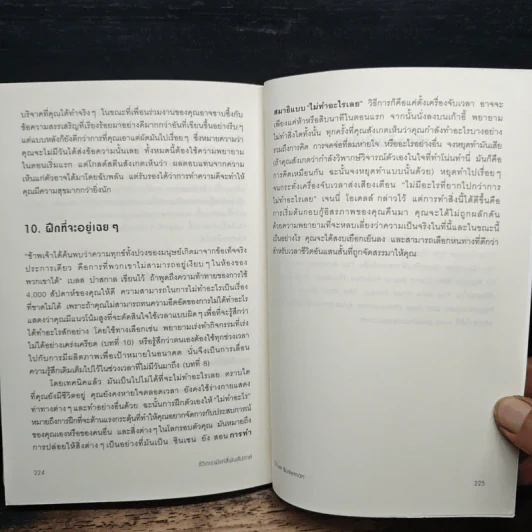 บริจาคที่คุณได้ทำจริงๆ ในขณะที่เพื่อนร่วมงานของคุณอาจซาบซึ้งกับ
ข้อความสรรเสริญที่เรียงร้อยมาอย่างดีมากกว่าอันที่เขียนขึ้นอย่างรีบๆ
แต่แบบหลังก็ยังดีกว่าการที่คุณเอาแต่ผัดผ่อนไปเรื่อยๆ ซึ่งหมายความว่า
คุณจะไม่มีวันได้ส่งข้อความนั้นเลย ทั้งหมดนี้ต้องใช้ความพยายาม
ในตอนเริ่มแรก แต่โกลด์สตีนสังเกตเห็นว่า ผลตอบแทนจากความ
เห็นแก่ตัวอาจได้มาโดยฉับพลัน แต่รับรองได้ว่าการทำความดีจะทำให้
คุณมีความสุขมากกว่ายิ่งนัก
10. ฝึกที่จะอยู่เฉยๆ
"ข้าพเจ้าได้ค้นพบว่าความทุกข์ทั้งปวงของมนุษย์เกิดมาจากข้อเท็จจริง
ประการเดียว คือการที่พวกเขาไม่สามารถอยู่เงียบๆ ในห้องของ
พวกเขาได้" เบลส ปาสกาล เขียนไว้ ถ้าพูดถึงความท้าทายของการใช้
4,000 สัปดาห์ของคุณให้ดี ความสามารถในการไม่ทำอะไรเป็นเรื่อง
ที่ขาดไม่ได้ เพราะถ้าคุณไม่สามารถทนความอึดอัดของการไม่ได้ทำอะไร
แสดงว่าคุณมีแนวโน้มสูงที่จะตัดสินใจใช้เวลาแบบผิดๆ เพื่อที่จะรู้สึกว่า
ได้ทำอะไรสักอย่าง โดยใช้ทางเลือกเช่น พยายามเร่งทำกิจกรรมที่เร่ง
ไม่ได้อย่างเคร่งเครียด (บทที่ 10) หรือรู้สึกว่าตนเองต้องใช้ทุกช่วงเวลา
ไปกับการมีผลิตภาพเพื่อเป้าหมายในอนาคต นั่นจึงเป็นการเลื่อน
ความรู้สึกเติมเต็มไปไว้ในช่วงเวลาที่ไม่มีวันมาถึง (บทที่ 8)
โดยเทคนิคแล้ว มันเป็นไปไม่ได้ที่จะไม่ทำอะไรเลย ตราบใด
ที่คุณยังมีชีวิตอยู่ คุณยังคงหายใจตลอดเวลา ยังคงใช้ร่างกายแสดง
ท่าทางต่างๆ และทำอย่างอื่นด้วย ฉะนั้นการฝึกตัวเองให้ "ไม่ทำอะไร"
หมายถึงการฝึกที่จะต้านแรงกระตุ้นที่ทำให้คุณอยากจัดการกับประสบการณ์
ของคุณเองหรือของคนอื่น และสิ่งต่างๆ ในโลกรอบตัวคุณ มันหมายถึง
การปล่อยให้สิ่งต่างๆ เป็นอย่างที่มันเป็น ชินเซน ยัง สอน การทำ
224
ชีวิตเรามีแค่สี่พันสัปดาห์
สมาธิแบบ "ไม่ทำอะไรเลย" วิธีการก็คือแค่ตั้งเครื่องจับเวลา อาจจะ
เพียงแค่ห้าหรือสิบนาทีในตอนแรก จากนั้นนั่งลงบนเก้าอี้ พยายาม
ไม่ทำสิ่งใดทั้งนั้น ทุกครั้งที่คุณสังเกตเห็นว่าคุณกำลังทำอะไรบางอย่าง
รวมถึงการคิด การจดจ่อที่ลมหายใจ หรืออะไรอย่างอื่น จงหยุดทำมันเสีย
(ถ้าคุณสังเกตว่ากำลังวิพากษ์วิจารณ์ตัวเองในใจที่ทำโน่นทำนี่ มันก็คือ
การคิดเหมือนกัน ฉะนั้นจงหยุดทำแบบนั้นด้วย) หยุดทำไปเรื่อยๆ
จนกระทั่งเครื่องจับเวลาส่งเสียงเตือน "ไม่มีอะไรที่ยากไปกว่าการ
ไม่ทำอะไรเลย" เจนนี่ โอเดลล์ กล่าวไว้ แต่การทำสิ่งนี้ได้ดีขึ้นคือ
การเริ่มต้นกอบกู้อิสรภาพของคุณคืนมา คุณจะได้ไม่ถูกผลักดัน
ด้วยความพยายามที่จะหลบเลี่ยงว่าความเป็นจริงในที่นี้และในขณะนี้
เป็นอย่างไร คุณจะได้สงบเยือกเย็นลง และสามารถเลือกหนทางที่ดีกว่า
สำหรับเวลาชีวิตอันแสนสั้นที่ถูกจัดสรรมาให้คุณ
Burkeman
225